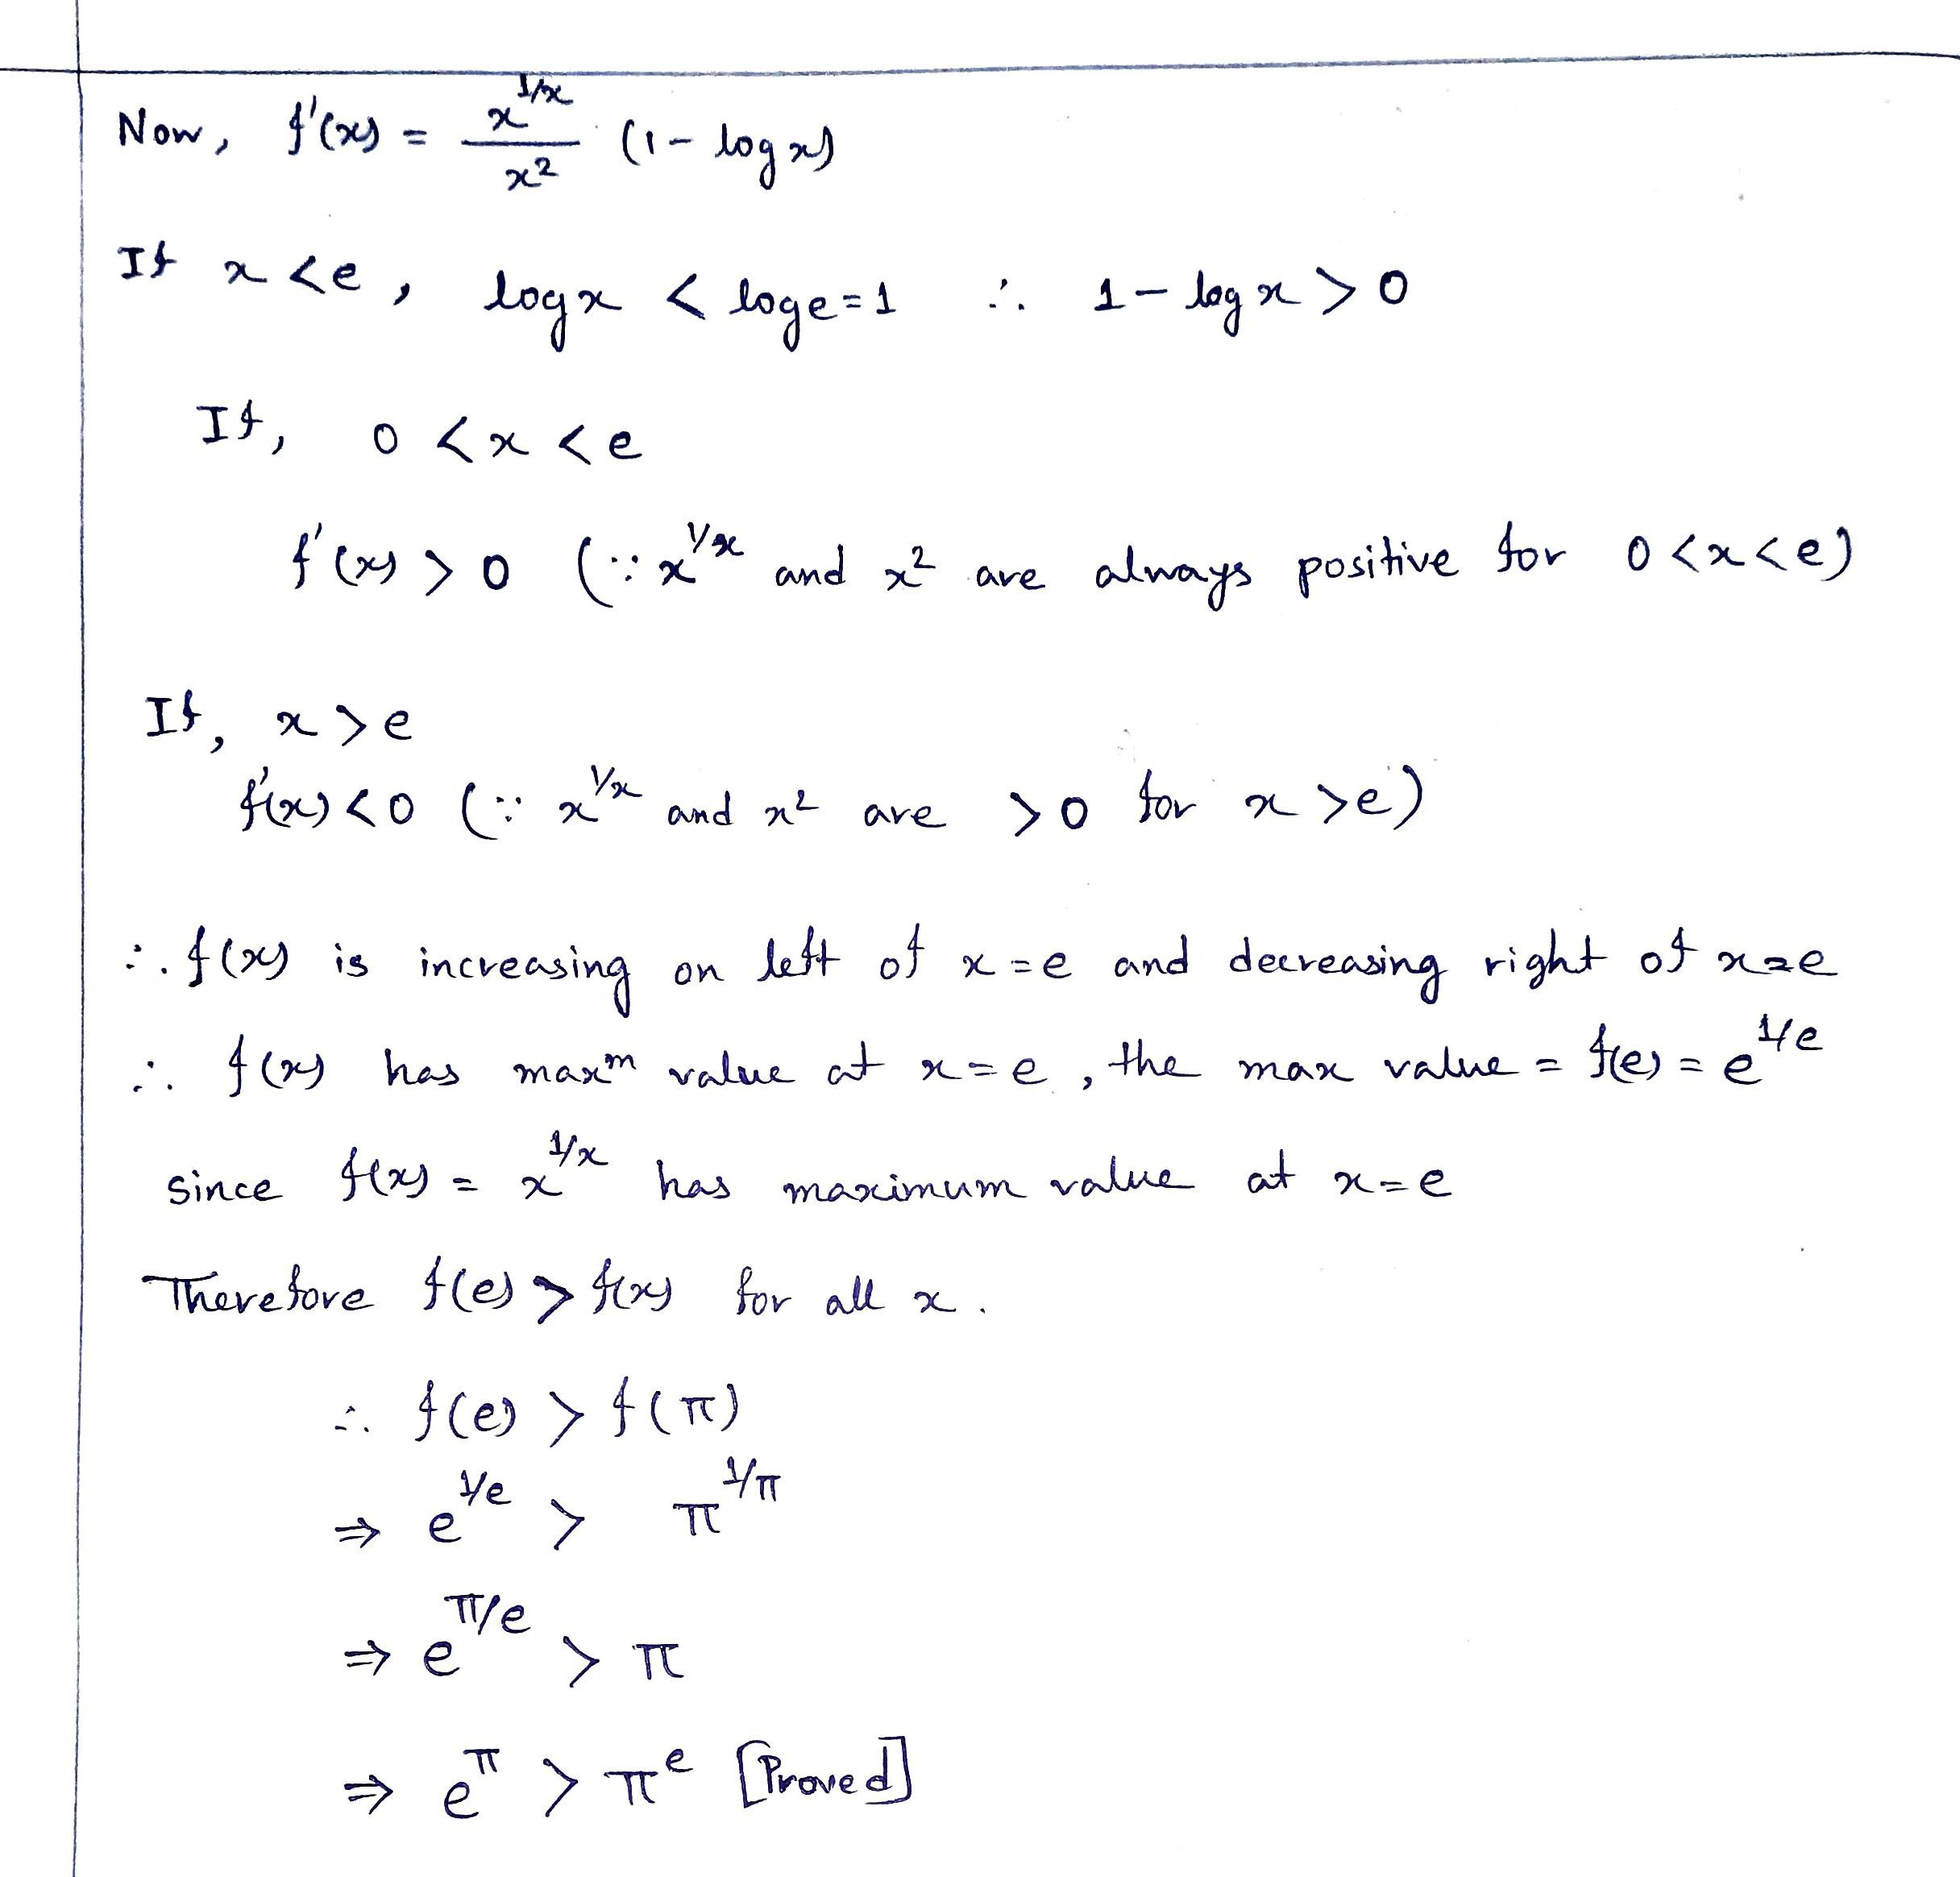 Now, f'(x) = x^{1/x}/x² (1 - log x)
If x < e, log x < log e = 1 ∴ 1 - log x > 0
If, 0 < x < e
f'(x) > 0 (∵ x^{1/x} and x² are always positive for 0 < x < e)
If, x > e
f'(x) < 0 (∵ x^{1/x} and x² are > 0 for x > e)
∴ f(x) is increasing on left of x = e and decreasing right of x = e
∴ f(x) has max^m value at x = e, the max value = f(e) = e^{1/e}
since f(x) = x^{1/x} has maximum value at x = e
Therefore f(e) > f(x) for all x.
∴ f(e) > f(π)
⇒ e^{1/e} > π^{1/π}
⇒ e^{π/e} > π
⇒ e^π > π^e [Proved]